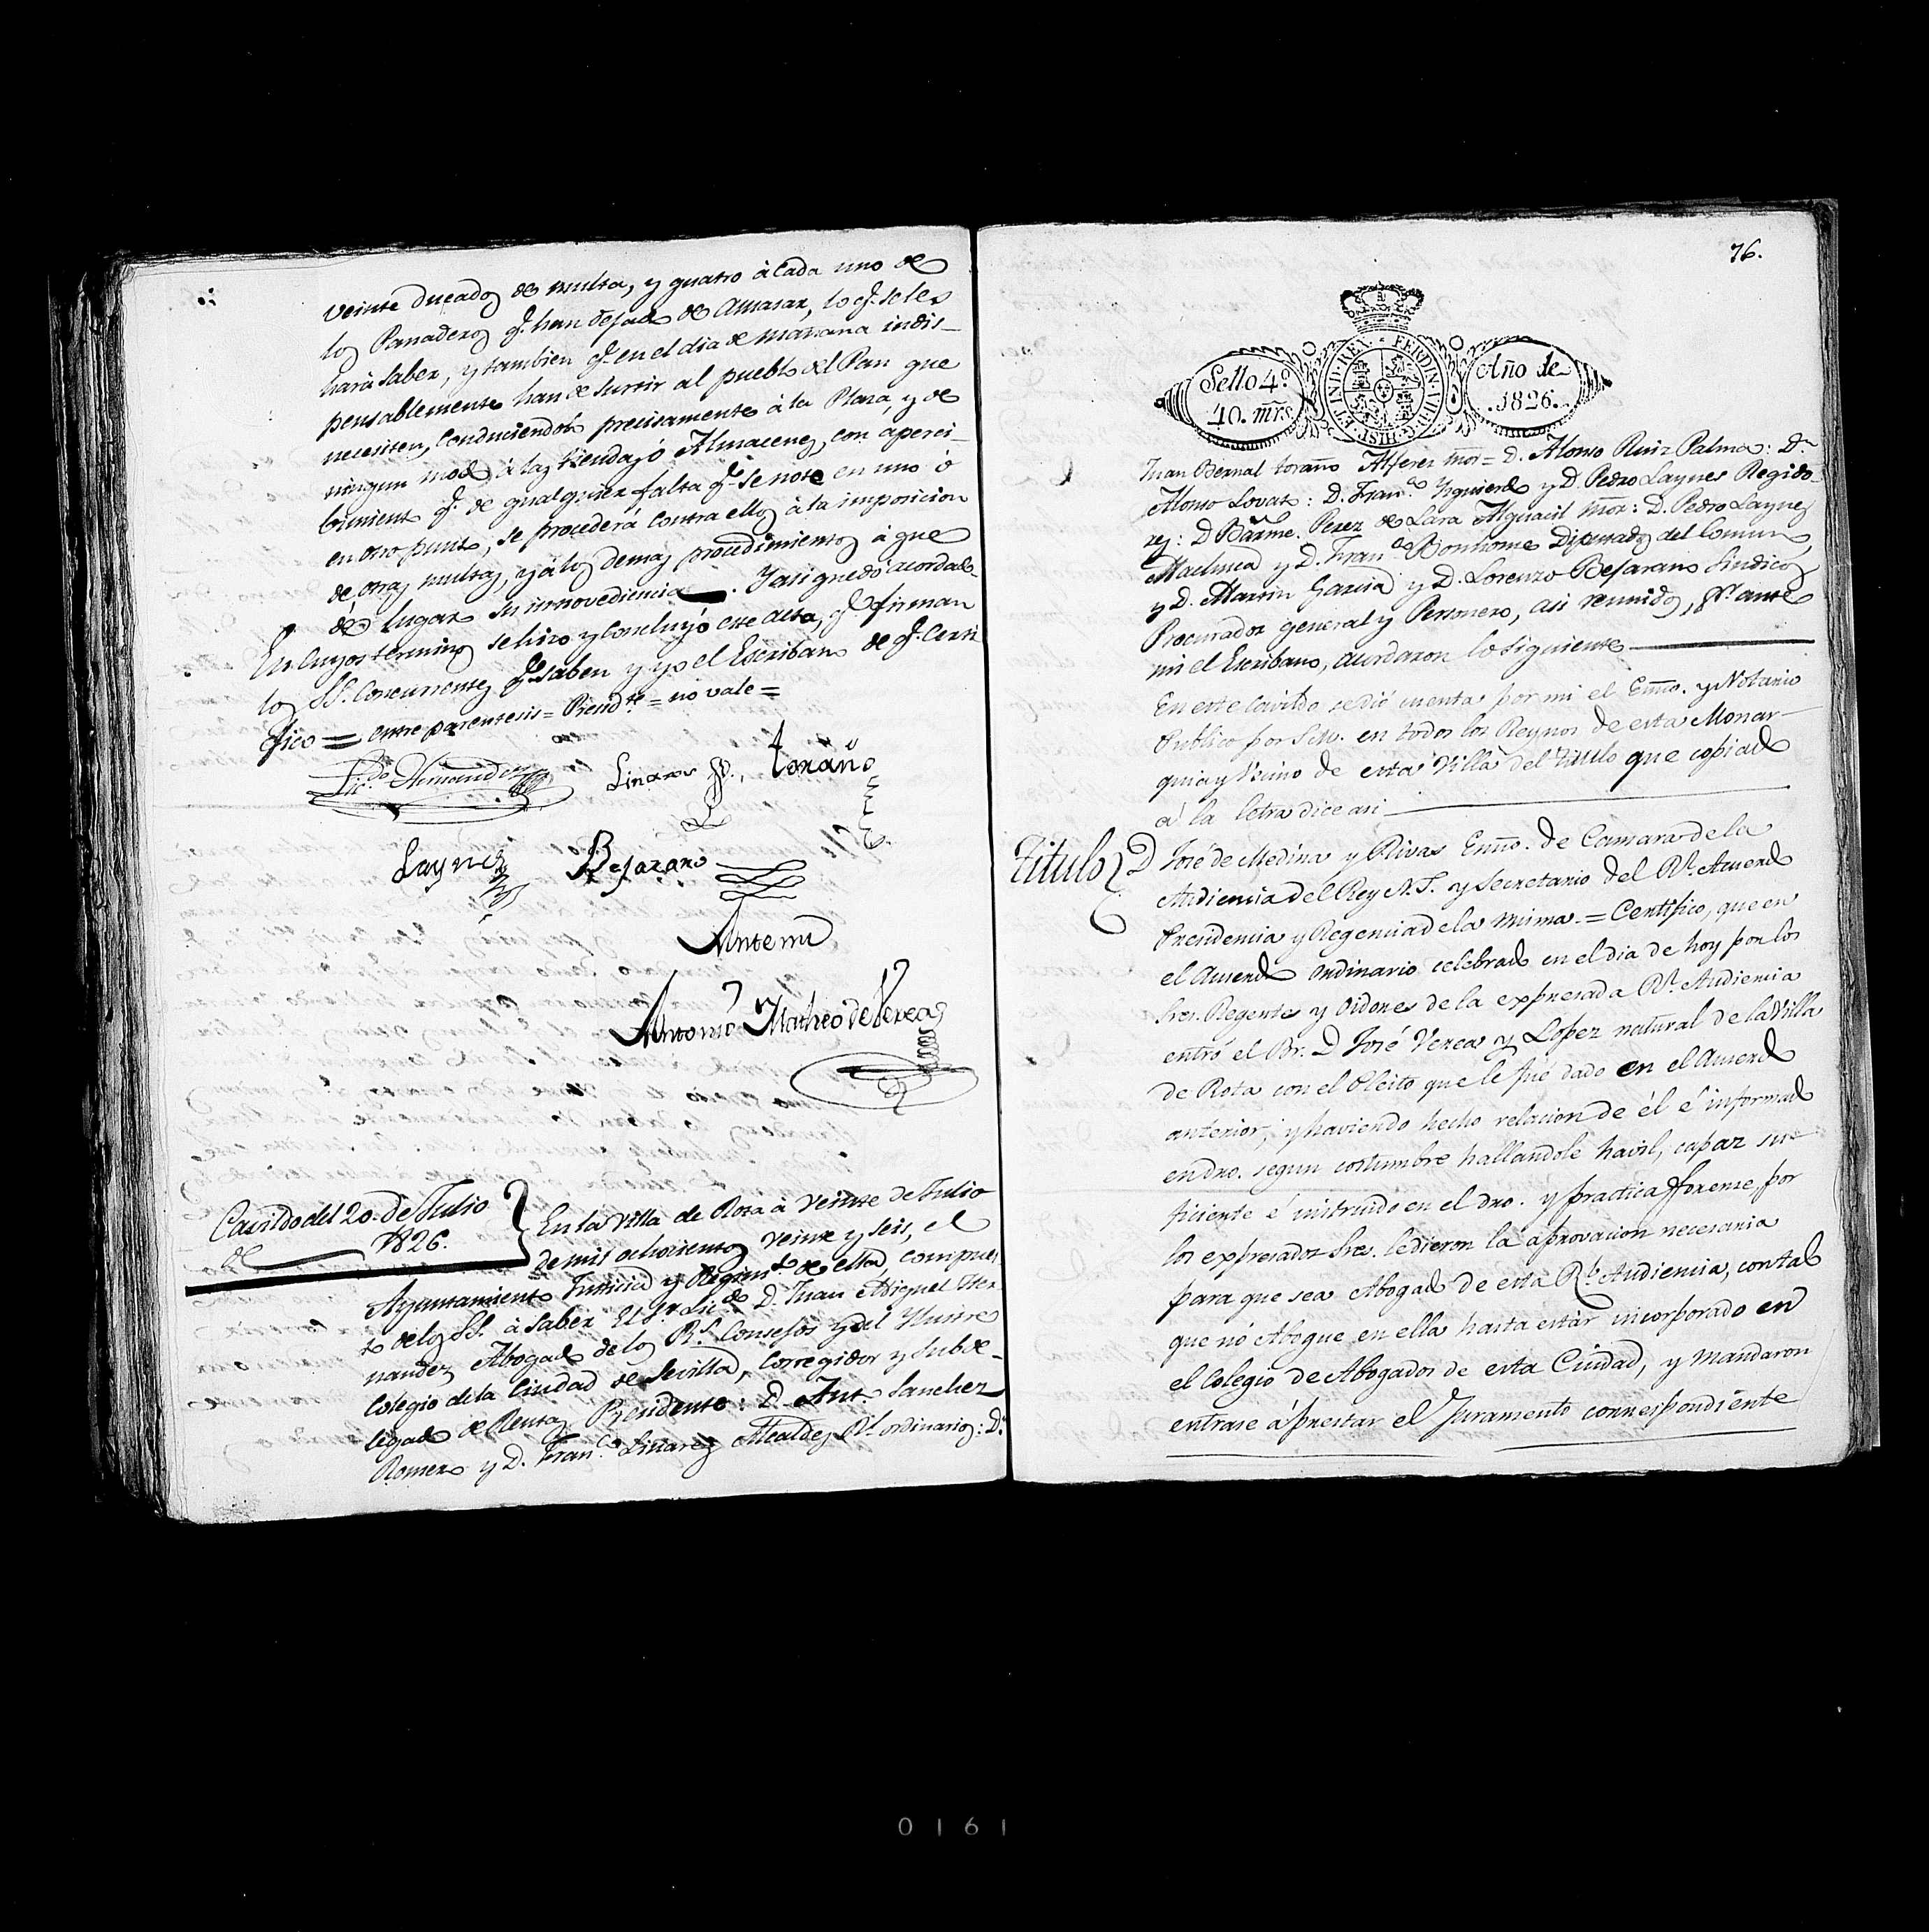 veinte ducados de multa, y quatro à cada uno de
los Panaderos q.e han dejado de amasar, lo q.e seles
hará saber, y tambien q.e en el dia de mañana indis-
pensablemente han de surtir al pueblo del Pan que
necesiten, conduciendolo precisamente à la Plaza, y de
ningun modo à las tiendas ó Almacenes, con aperci-
bimiento q.e de qualquier falta q.e se note en uno ò
en otro punto, se procederá contra ellos à la imposicion
de otras multas, y à los demas procedimientos à que
dé lugar su innovediencia. Y asi quedó acordado.
En cuyos terminos se hizo y concluyó este acta, q.e firman
los SS. Concurrentes q.e saben y yo el Escribano de q.e certi-
fico = entre parentesis = = no vale =
Lic.do Hernandez
Linares Toraño
Laynez Bejarano
Ante mi
Antonio Matheo de Verea
Cavildo del 20. de Julio
de 1826.
En la villa de Rota à veinte de Julio
de mil ochocientos veinte y seis, el
Ayuntamiento Justicia y Regim.to de ella, compues-
to de los SS. à saber El S.r Lic.do D. Juan Miguel Her-
nandez Abogado de los R.s Consejos y del Ilustre
Colegio de la Ciudad de Sevilla, Corregidor y Subde-
legado de Rentas Presidente: D. Ant.o Sanchez
Romero y D. Fran.co Linares Alcaldes R.s ordinarios: D.n
76.
Sello 4º
40. mrs.
HISP. ET IND. REX. FERDIN. VII. D. G.
Año de
1826.
Juan Bernal toraño Alferez mor = D. Alonso Ruiz Palma: D.n
Alonso Lovato: D. Fran.co Yzquierdo y D. Pedro Laynes Regido-
res: D. Barme. Perez de Lara Alguacil mor: D. Pedro Laynez
Machuca y D. Fran.co Bonhome Diputados del Comun,
y D. Martin Garcia y D. Lorenzo Bejarano Sindicos
Procurador general y Personero, asi reunidos, p.r ante
mi el Escribano, acordaron lo siguiente
En este Cavildo se dió cuenta por mi el Esno. y Notario
Publico por S.M. en todos los Reynos de esta Monar-
quia y Vecino de esta Villa del titulo que copiado
á la letra dice asi
Titulo D José de Medina y Rivas Esno. de Camara de la
Audiencia del Rey N. S. y Secretario del R.l Acuerdo
Presidencia y Regencia de la misma. = Certifico, que en
el Acuerdo ordinario celebrado en el dia de hoy por los
Sres. Regente y Oidores de la expresada R.l Audiencia
entró el Br. D José Verea y Lopez natural de la Villa
de Rota con el Pleito que le fué dado en el Acuerdo
anterior, y haviendo hecho relacion de él é informado
en dro. segun costumbre hallandole havil, capaz su-
ficiente é instruido en el dro. y practica forense, por
los expresados Sres. le dieron la aprovacion necesaria
para que sea Abogado de esta R.l Audiencia, con tal
que nó Abogue en ella hasta estár incorporado en
el Colegio de Abogados de esta Ciudad, y mandaron
entrase á prestar el Juramento correspondiente
0161